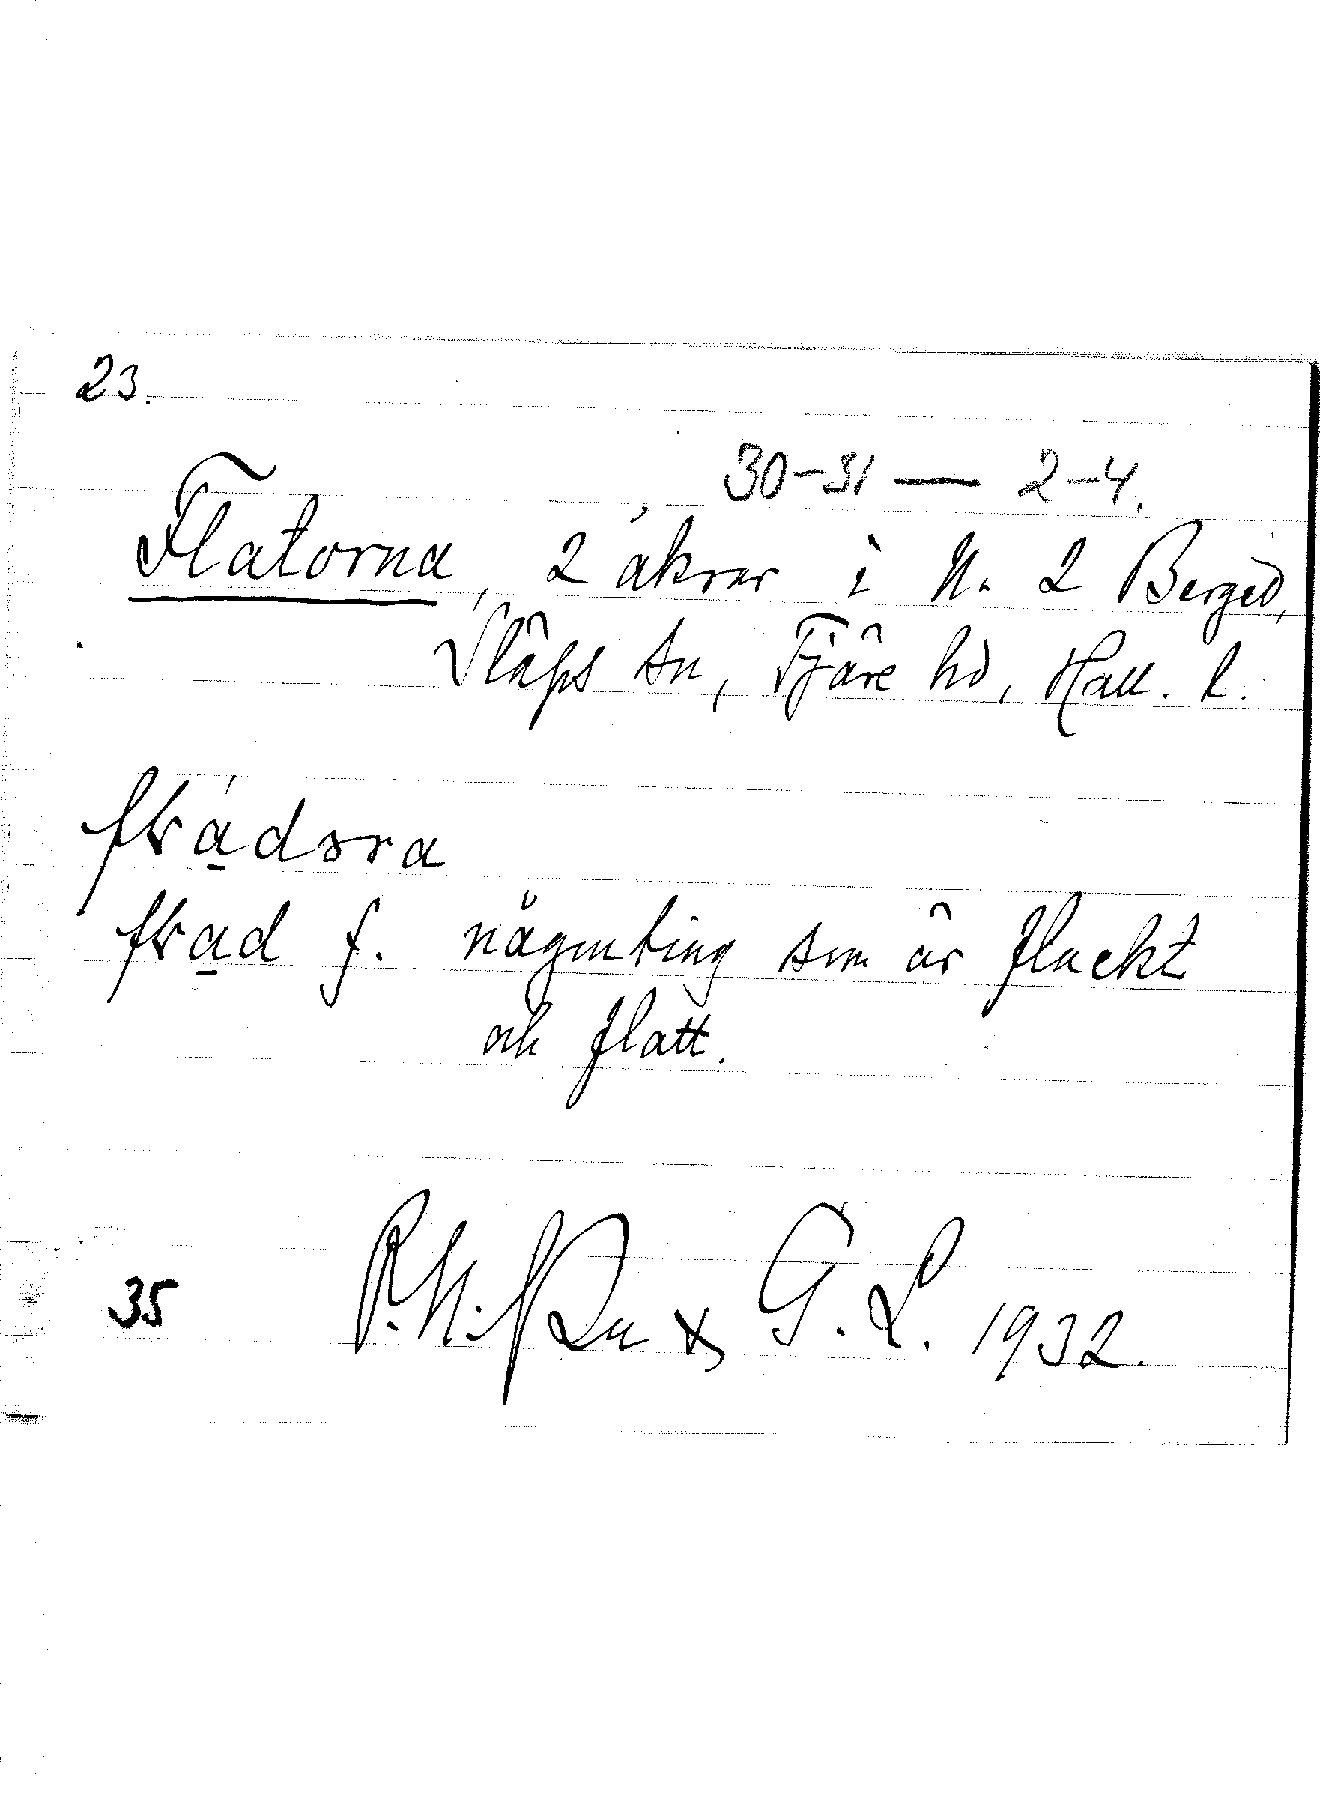 23.
30-31 — 2-4.
Flatorna, 2 åkrar i N. 2 Berged,
Släps sn, Fjäre hd, Hall. l.
f. någonting som är flackt
och flatt.
35 G. L. 1932.